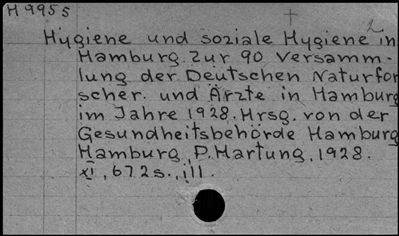 H 9955
2
Hygiene und soziale Hygiene in
Hamburg. Zur 90 Versamm-
lung der Deutschen Naturfor
scher. und Ärzte in Hamburg
im Jahre 1928. Hrsg. von der
Gesundheitsbehörde Hamburg
Hamburg, P. Hartung, 1928.
XI, 672 s., ill.